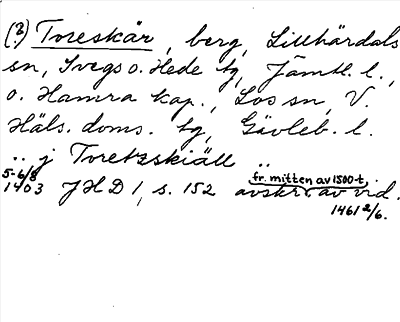 (?) Toreskär, berg, Lillhärdals
sn, Svegs o. Hede tg, Jämtl. l.,
o. Hamra kap., Los sn, V.
Häls. doms. tg, Gävleb. l.
.. j Toretzskiäll ..
5-6/8
1403 JHD 1, s. 152 avskr. av vid.
fr. mitten av 1500-t.
1461 2/6.